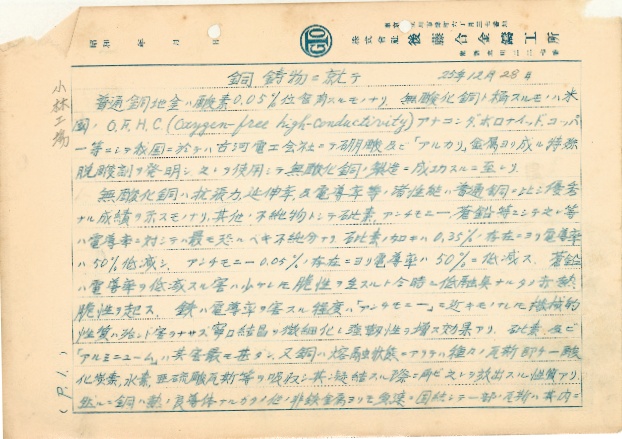 株式會社 後藤合金鑄工所
昭和 年 月 日
銅鋳物ニ就テ
25年12月28日
小林工場
普通銅地金ハ酸素0.05%位含有スルモノナリ 無酸化銅ト稱スルモノハ米
國、O.F.H.C.(Oxygen-free high-conductivity)アナコンダ、
一等ニシテ我國ニ於テハ古河電工会社ニテ硼酸及ビ「アルカリ」金属ヨリ成ル特殊
脱酸剤ヲ発明シ之レヲ使用シテ無酸化銅ノ製造ニ成功スルニ至レリ
無酸化銅ハ抗張力、延伸率、及電導率等ノ諸性能ハ普通銅ニ比シ優秀
ナル成績ヲ示スモノナリ、其他ノ不純物トシテ砒素、アンチモニー、蒼鉛等ニシテ之レ等
ハ電導率ニ対シテハ最モ恐ルベキ不純分ナリ 砒素ノ如キハ0.35%ノ存在ニヨリ電導率
ハ50%低減シ、アンチモニー0.05%ノ存在ニヨリ電導率ハ50%低減ス、蒼鉛
ハ電導率ヲ低減スル害ハ小ナレド脆性ヲ至スルト今時ニ低融臭ナルタメ赤熱
脆性ヲ起ス、鉄ハ電導率ヲ害スル程度ハ「アンチモニー」ニ近キモノナレド機械的
性質ハ殆ント害ヲナサズ寧ロ結晶ヲ微細化シ強靭性ヲ増ス効果アリ、砒素、及ビ
「アルミニューム」ハ其害最モ甚ダシ、又銅ハ熔融状態ニアリテハ種々ノ瓦斯即チ一酸
化炭素、水素、亜硫酸瓦斯等ヲ吸収シ其凝結スル際ニ再ビ之レヲ放出スル性質アリ、
然ルニ銅ハ熱ノ良導体ナルカラ他ノ非鉄金属ヨリモ急速ニ固結シテ一部ノ瓦斯ハ其内ニ
(P.1.)